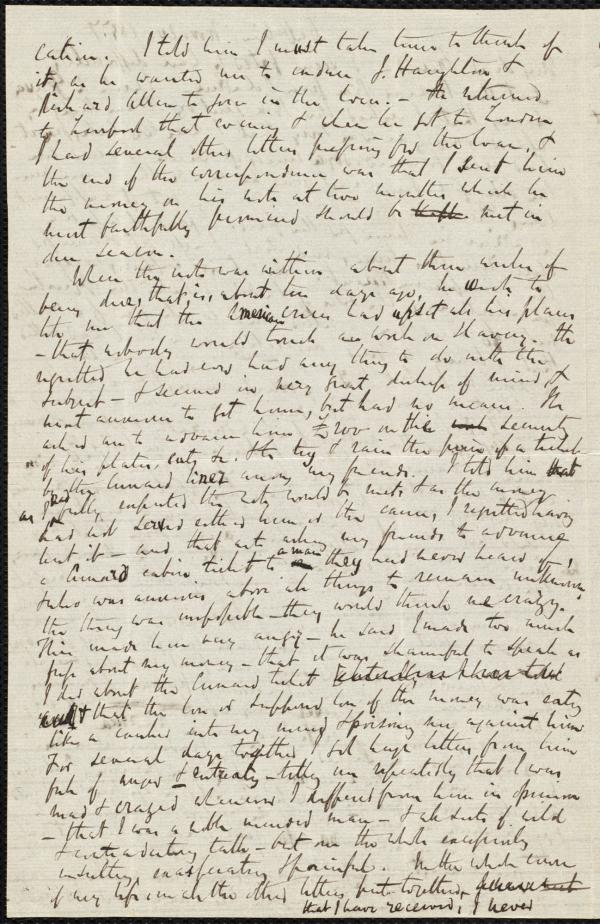 cation. I told him I must take time to think of
it, as he wanted me to induce J. Haughton &
Richard Allen to join in the loan. – He returned
to Liverpool that evening & when he got to London
I had several other letters pressing for the loan, &
the end of the correspondence was that I sent him
the money on his note at two months which he
most faithfully promised should be met in
due season.
When the note was within about three weeks of
being due, that is, about ten days ago, he wrote to
tell me that the American crisis had upset all his plans
– that nobody would touch any work on Slavery. He
regretted he had ever had any thing to do with the
subject – & seemed in very great distress of mind, &
most anxious to get home, but had no means. He
asked me to advance him £ on the security
of his plates, &c. Or to try & raise the price of a ticket
by the Cunard line among my friends. I told him that
as I had fully expected the note would be met & as the money
had not served either him or the cause, I regretted having
lent it – and that as to asking my friends to advance
a Cunard cabin ticket to a man they had never heard of,
& who was anxious above all things to remain unknown,
the thing was impossible – they would think me crazy.
This made him very angry – he said I made too much
fuss about my money – that it was shameful to speak as
I did about the Cunard ticket
& that the loss or supposed loss of the money was eating
like a canker into my mind & poisoning me against him
For several days together I got huge letters from him
full of anger & entreaty – telling me repeatedly that I was
mad & crazed whenever I differed from him in opinion
– that I was a noble minded man – & all sorts of wild
& contradictory talk – but on the whole excessively
insulting, exasperating & painful. In the whole course
of my life in all the other letters put together,
that I have received, I never